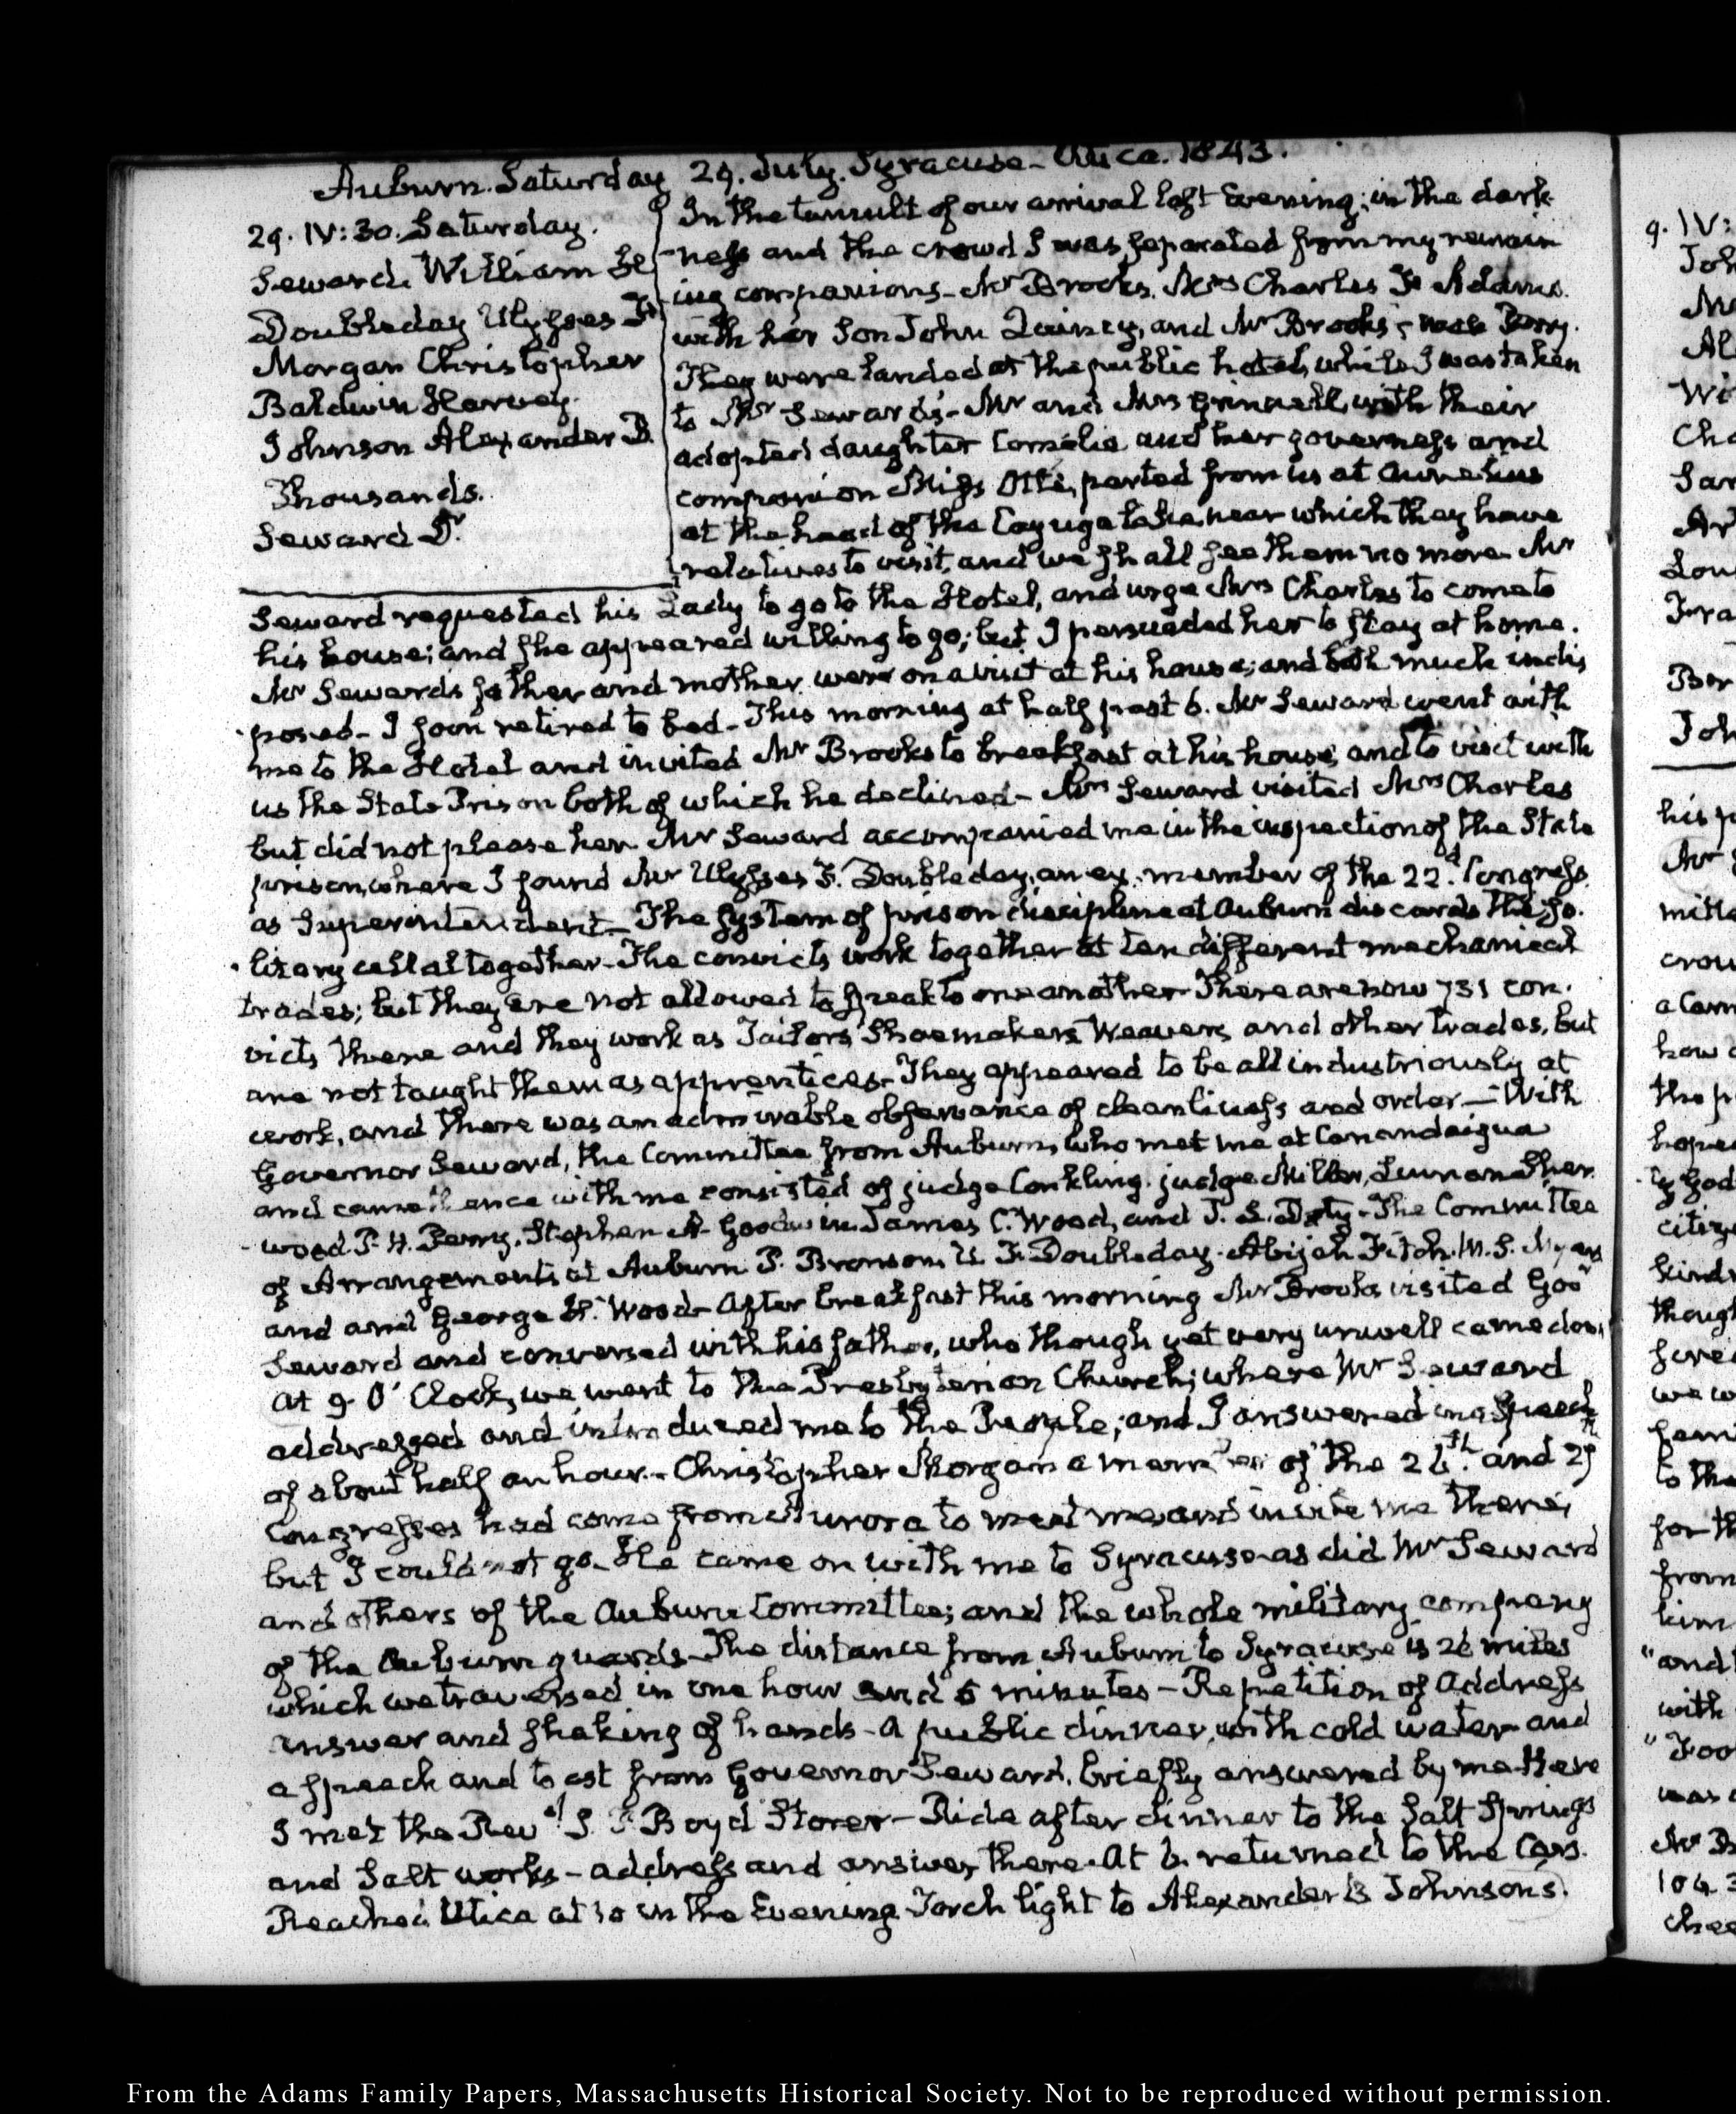 Auburn. Saturday 29. July. Syracuse - Utica. 1843.
29. IV:30. Saturday.
Seward. William H
Doubleday Ulysses F.
Morgan Christopher
Baldwin Harvey.
Johnson Alexander B.
Thousands.
Seward Dr
In the tumult of our arrival last Evening; in the dark-
ness and the crowd I was separated from my remain
ing companions - Mr Brooks, Mrs Charles F. Adams.
with her Son John Quincy, and Mr Brooks's
They were landed at the public hotel, while I was taken
to Mr Seward's - Mr and Mrs Grinnell, with their
adopted daughter Cornelia and her governess and
companion Miss parted from us at Aurelius
at the head of the Cayuga Lake, near which they have
relatives to visit, and we shall see them no more. Mr
Seward requested his Lady to go to the Hotel, and urge Mrs Charles to come to
his house; and she appeared willing to go; but I persuaded her to stay at home.
Mr Sewards father and mother were on a visit at his house; and both much indis
posed - I soon retired to bed - This morning at half past 6. Mr Seward went with
me to the Hotel and invited Mr Brooks to breakfast at his house, and to visit with
us the State Prison both of which he declined - Mrs Seward visited Mrs Charles
but did not please her. Mr Seward accompanied me in the inspection of the State
prison, where I found Mr Ulysses F. Doubleday, an ex. member of the 22.d Congress
as Superintendent - The system of prison discipline at Auburn discards the so.
litary cell altogether - The convicts work together at ten different mechanical
trades; but they are not allowed to speak to one another - There are now 731 con.
victs there and they work as Tailors Shoemakers Weavers and other trades, but
are not taught them as apprentices - They appeared to be all industriously at
work, and there was an admirable observance of cleanliness and order — With
Governor Seward, the Committee from Auburn, who met me at Canandaigua
and came hence with me consisted of judge Conkling. judge Miller, Luman Sher.
wood. P. H. Perry. Stephen A. Goodwin. James C. Wood, and J. S. Doty - The Committee
of Arrangements at Auburn P. Bronson. U. F. Doubleday. Abijah Fitch. M. S. Myers
and and George H. Wood - After breakfast this morning Mr Brooks visited Govr
Seward and conversed with his father, who though yet very unwell came down
At 9 O'Clock, we went to the Presbyterian Church; where Mr Seward
addressed and introduced me to the People; and I answered in a Speech
of about half an hour. - Christopher Morgan a member of the 26th. and 27
Congresses had come from Aurora to meet me and invite me there;
but I could not go. He came on with me to Syracuse as did Mr Seward
and others of the Auburn Committee; and the whole military company
of the Auburn guards - The distance from Auburn to Syracuse is 26 miles
which we traversed in one hour and 5 minutes - Repetition of Address
answer and shaking of hands - A public dinner, with cold water and
a speach and toast from Governor Seward, briefly answered by me. Here
I met the Revd J. P. Boyd Storer - Ride after dinner to the Salt Springs
and Salt works - address and answer there. At 6. returned to the Cars.
Reached Utica at 10 in the Evening Torch light to Alexander B Johnson's.
From the Adams Family Papers, Massachusetts Historical Society. Not to be reproduced without permission.